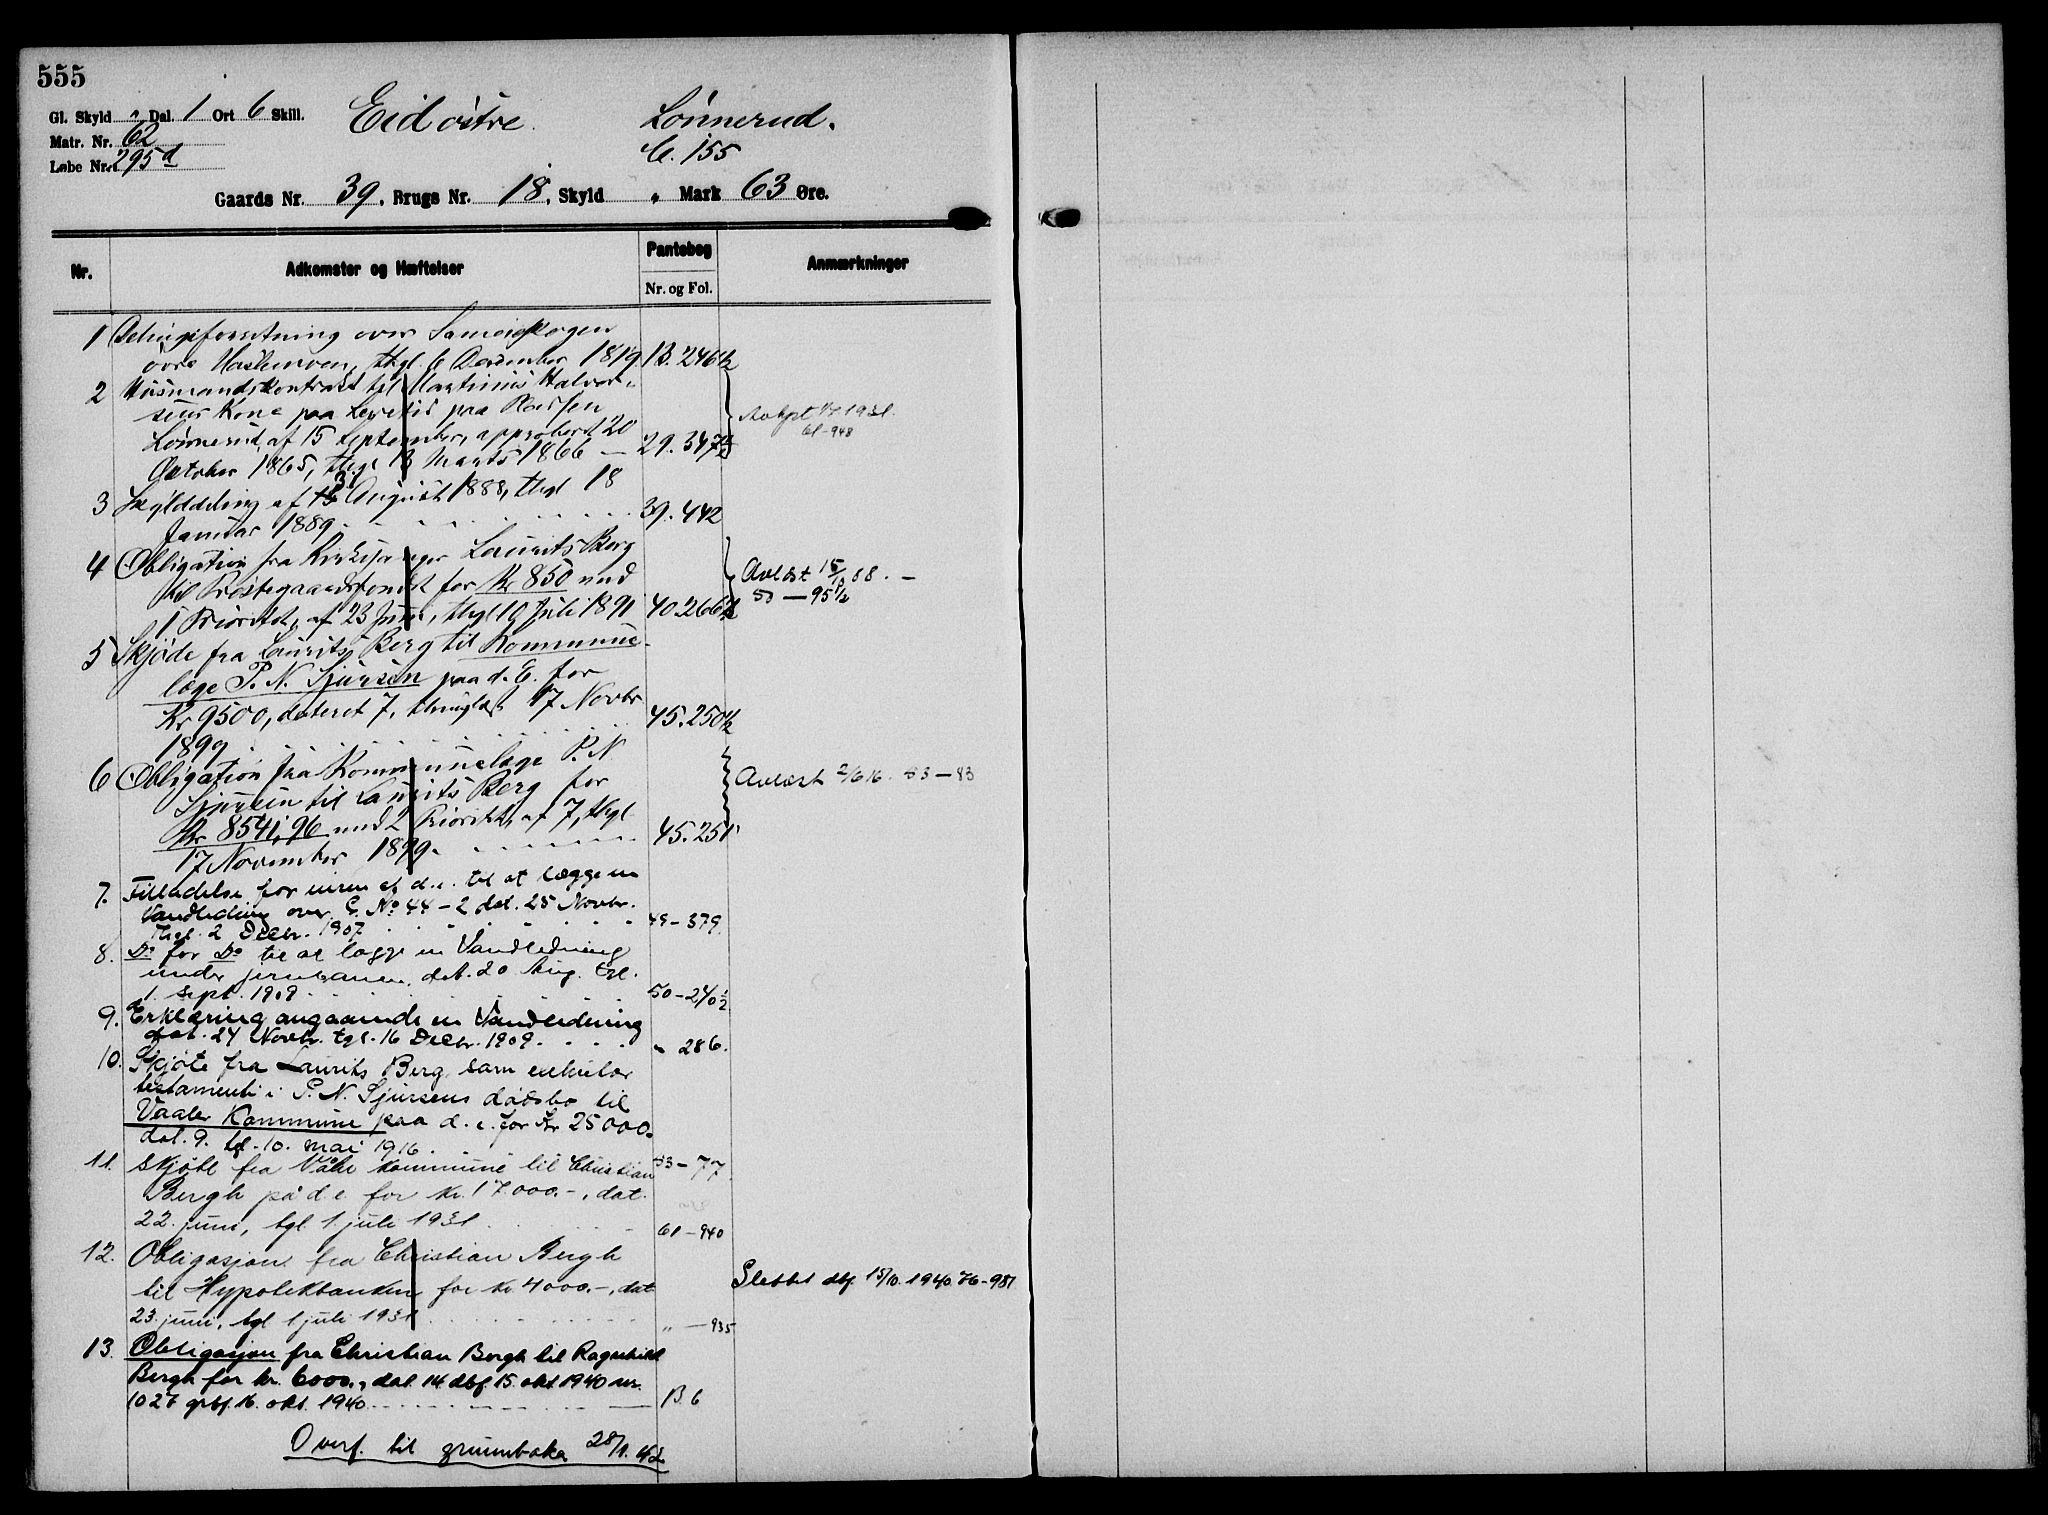 555
Gl. Skyld " Dal. 1 Ort 6 Skill. Eid østre. Lønnerud.
Matr. Nr. 62
Løbe Nr. 295d C. 155
Gaards Nr. 39, Brugs Nr. 18, Skyld " Mark 63 Øre.
Nr. Adkomster og Hæftelser Pantebog Anmærkninger
Nr. og Fol.
1 Delingsforretning over Sameieskogen
øvre Haslemoen, thgl. 6 December 1819 B. 246½
2 Husmandskontrakt til Martinus Halvor-
sens Kone paa Levetid paa Pladsen
Lønnerud, af 15 September, approberet 20
Oktober 1865, thgl 13 Marts 1866 — 29. 347½
Avlyst 1/7 1931.
61-948
3 Skylddeling af 31 August 1888, thgl 18
Januar 1889 . . . 39. 442
4 Obligation fra Kirkesanger Laurits Berg
til Præstegaardsfondet for Kr 850 med
1 Prioritet, af 23 Juni, thgl 10 Juli 1891 40. 266½
Avlæst 15/10 08. —
50 — 95½
5 Skjøde fra Laurits Berg til Kommune-
læge P. N. Sjursen paa d. E. for
Kr 9500, dateret 7, thinglæst 17 Novbr
1899 . . . 45. 250½
6 Obligation fra Kommunelæge P. N
Sjursen til Laurits Berg for
Kr. 8541,96 med 2 Prioritet, af 7, thgl
17 November 1899. . . . 45. 251
Avlæst 2/6 16. 53 — 83
7. Tilladelse for eieren af d.e. til at lægge en
Vandledning over G. No 44 – 2 dat. 25 Novbr.
thgl. 2 Decbr. 1907 . . . 49 – 379.
8. Do for Do til at lægge en Vandledning
under jernbanen, dat. 20 Aug. tgl.
1. sept. 1909 . . . 50 – 240½
9. Erklæring angaaende en Vandledning
dat. 24 Novbr. tgl. 16 Decbr. 1909. . . . " 286.
10. Skjøte fra Laurits Berg som exekutor
testamenti i P. N. Sjursens dødsbo til
Vaaler Kommune paa d. e. for Kr 25000.
dat. 9. tgl. 10. mai 1916 . . . 53 – 77.
11. Skjøte fra Våler kommune til Christian
Bergh på d e for kr. 17.000.–, dat.
22. juni, tgl. 1. juli 1931 . . . 61 – 940
12. Obligasjon fra Christian Bergh
til Hypotekbanken for kr. 4000.–, dat
23. juni, tgl. 1 juli 1931 . . . " — 935
Slettet dbf. 15/10. 1940 76 – 981
13. Obligasjon fra Christian Bergh til Ragnhild
Bergh for kr. 6000., dat. 14. dbf. 15. okt. 1940 nr.
1027 grbf. 16. okt. 1940 . . . B. 6
Overf. til grunnboka 28/1. 42